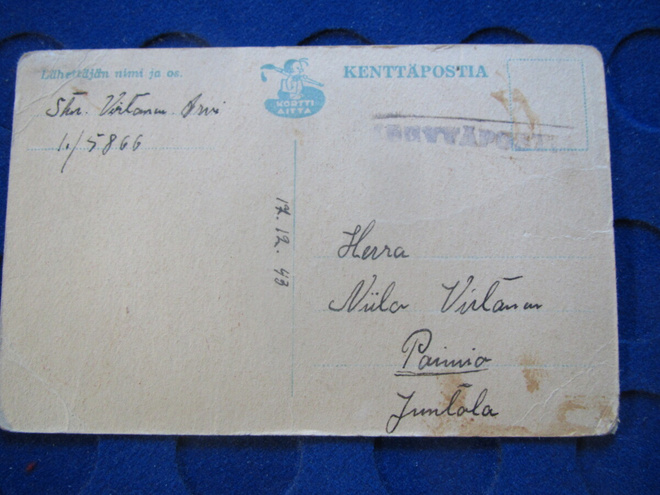 Lähettäjän nimi ja os.
Stm. Virtanen Arvi
1./5866
KORTTI
AITTA
KENTTÄPOSTIA
KENTTÄPOSTIA
17.12.43
Herra
Niilo Virtanen
Paimio
Juntola